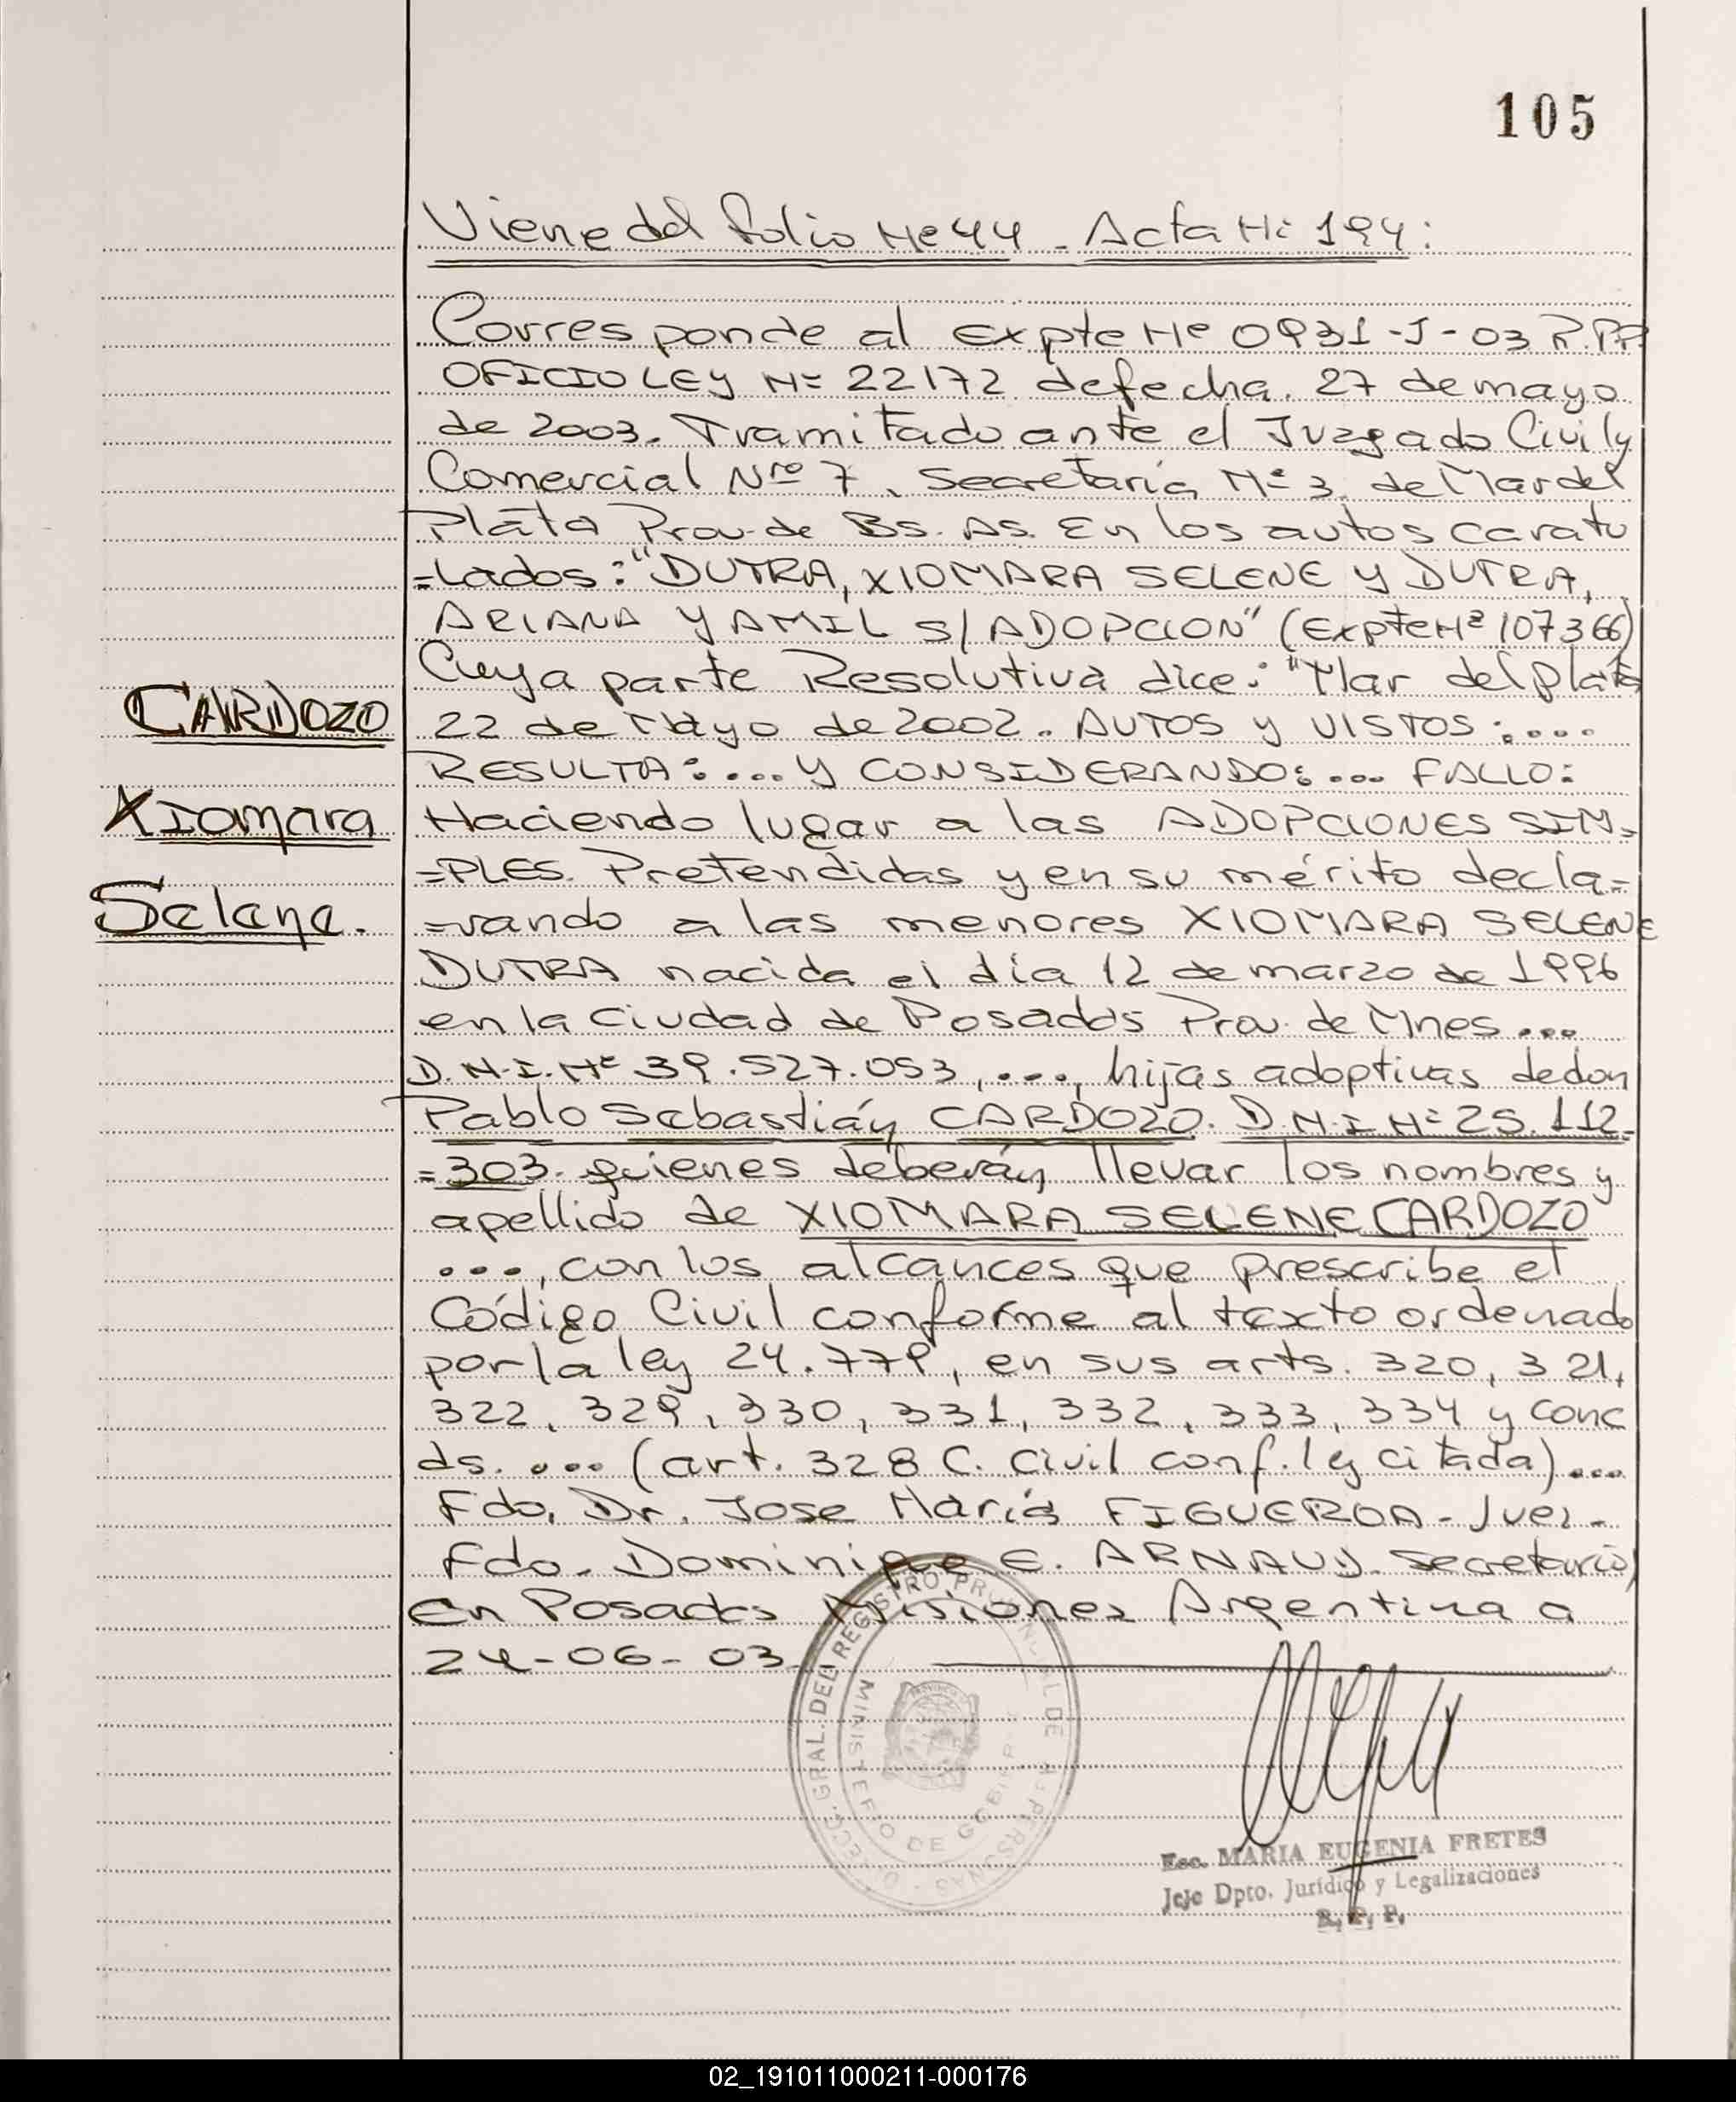 105
Viene del folio Nº 44 - Acta Nº 194:
Corresponde al Expte Nº 0931-J-03 R.P.P.
OFICIO LEY Nº 22172 de fecha. 27 de mayo
de 2003. Tramitado ante el Juzgado Civil y
Comercial Nro 7, Secretaría Nº 3. de Mar del
Plata Prov. de Bs. As. En los autos caratu
=lados: "DUTRA, XIOMARA SELENE Y DUTRA,
ARIANA YAMIL S/ADOPCION" (Expte Nº 107366)
Cuya parte Resolutiva dice: "Mar del Plata
CARDOZO
22 de Mayo de 2002. AUTOS y VISTOS:....
RESULTA:.... y CONSIDERANDO:... FALLO:
Xiomara
Haciendo lugar a las ADOPCIONES SIM=
=PLES. Pretendidas y en su mérito decla=
Selene.
=rando a las menores XIOMARA SELENE
DUTRA nacida el día 12 de marzo de 1996
en la Ciudad de Posadas Prov. de Mnes...
D.N.I. Nº 39.527.053, ..., hijas adoptivas de don
Pablo Sebastián CARDOZO. D.N.I Nº 25.112.
=303. quienes deberán llevar los nombres y
apellido de XIOMARA SELENE CARDOZO
..., con los alcances que prescribe el
Código Civil conforme al texto ordenado
por la ley 24.779, en sus arts. 320, 321,
322, 329, 330, 331, 332, 333, 334 y conc
ds. ... (art. 328 C. Civil conf. ley citada)...
Fdo. Dr. Jose María FIGUEROA - Juez -
Fdo. Dominique E. ARNAUD. Secretario,
En Posadas Misiones Argentina a
24-06-03.
DIRECC. GRAL. DEL REGISTRO PROVINCIAL DE LAS PERSONAS
MINISTERIO DE GOBIERNO
Esc. MARIA EUGENIA FRETES
Jefe Dpto. Jurídico y Legalizaciones
R. P. P.
02_191011000211-000176